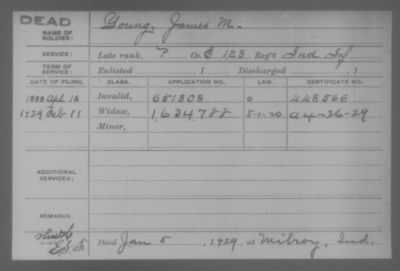 DEAD
NAME OF SOLDIER: Young, James M.
SERVICE: Late rank, ? Co. E, 123 Reg't Ind Inf
TERM OF SERVICE: Enlisted 1 Discharged 1
DATE OF FILING. CLASS. APPLICATION NO. LAW. CERTIFICATE NO.
1888 Apl 16 Invalid, 651308 448566
1929 Feb 11 Widow, 1,634,788 5-1-20 a 4-26-29
Minor,
ADDITIONAL SERVICES:
REMARKS:
Died Jan 5, 1929, at Milroy, Ind.